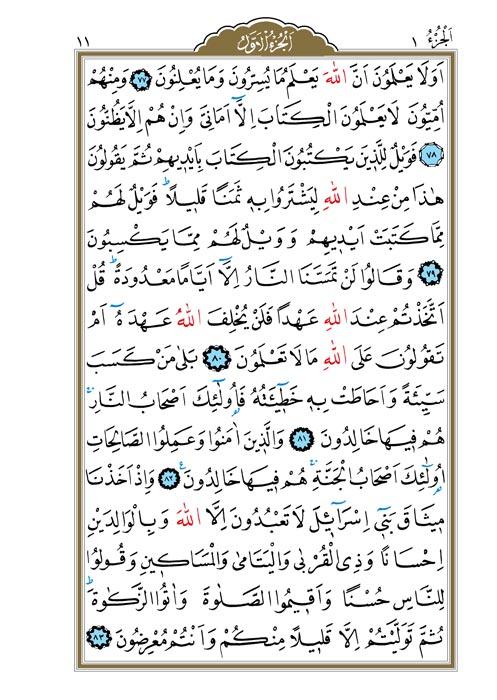 اَلْجُزْءُ ١ اَلْجُزْءُ الْاَوَّلُ ١١
اَوَلَا يَعْلَمُونَ اَنَّ اللّٰهَ يَعْلَمُ مَا يُسِرُّونَ وَمَا يُعْلِنُونَ ﴿٧٧﴾ وَمِنْهُمْ
اُمِّيُّونَ لَا يَعْلَمُونَ الْكِتَابَ اِلَّٓا اَمَانِيَّ وَاِنْ هُمْ اِلَّا يَظُنُّونَ
﴿٧٨﴾ فَوَيْلٌ لِلَّذ۪ينَ يَكْتُبُونَ الْكِتَابَ بِاَيْد۪يهِمْ ثُمَّ يَقُولُونَ
هٰذَا مِنْ عِنْدِ اللّٰهِ لِيَشْتَرُوا بِه۪ ثَمَنًا قَل۪يلًاۜ فَوَيْلٌ لَهُمْ
مِمَّا كَتَبَتْ اَيْد۪يهِمْ وَوَيْلٌ لَهُمْ مِمَّا يَكْسِبُونَ
﴿٧٩﴾ وَقَالُوا لَنْ تَمَسَّنَا النَّارُ اِلَّٓا اَيَّامًا مَعْدُودَةًۜ قُلْ
اَتَّخَذْتُمْ عِنْدَ اللّٰهِ عَهْدًا فَلَنْ يُخْلِفَ اللّٰهُ عَهْدَهُٓ اَمْ
تَقُولُونَ عَلَى اللّٰهِ مَا لَا تَعْلَمُونَ ﴿٨٠﴾ بَلٰى مَنْ كَسَبَ
سَيِّئَةً وَاَحَاطَتْ بِه۪ خَط۪ٓيـَٔتُهُ فَاُو۬لٰٓئِكَ اَصْحَابُ النَّارِۚ
هُمْ ف۪يهَا خَالِدُونَ ﴿٨١﴾ وَالَّذ۪ينَ اٰمَنُوا وَعَمِلُوا الصَّالِحَاتِ
اُو۬لٰٓئِكَ اَصْحَابُ الْجَنَّةِۚ هُمْ ف۪يهَا خَالِدُونَ۟ ﴿٨٢﴾ وَاِذْ اَخَذْنَا
م۪يثَاقَ بَن۪ٓي اِسْرَٓائ۪لَ لَا تَعْبُدُونَ اِلَّا اللّٰهَ وَبِالْوَالِدَيْنِ
اِحْسَانًا وَذِي الْقُرْبٰى وَالْيَتَامٰى وَالْمَسَاك۪ينِ وَقُولُوا
لِلنَّاسِ حُسْنًا وَاَق۪يمُوا الصَّلٰوةَ وَاٰتُوا الزَّكٰوةَۜ
ثُمَّ تَوَلَّيْتُمْ اِلَّا قَل۪يلًا مِنْكُمْ وَاَنْتُمْ مُعْرِضُونَ ﴿٨٣﴾